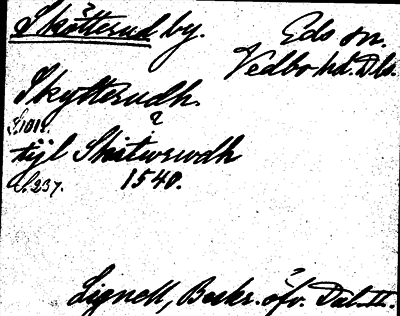 Skötterud by. Eds sn.
Vedbo hd. Dls.
Skytterudh.
S. 101. ?
tijl Skitwrwdh
S. 237. 1540.
Lignell, Beskr. öfv. Dal. II.